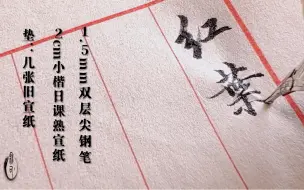 红葉
1.5mm双层尖钢笔
2cm小楷日课熟宣纸
垫：几张旧宣纸